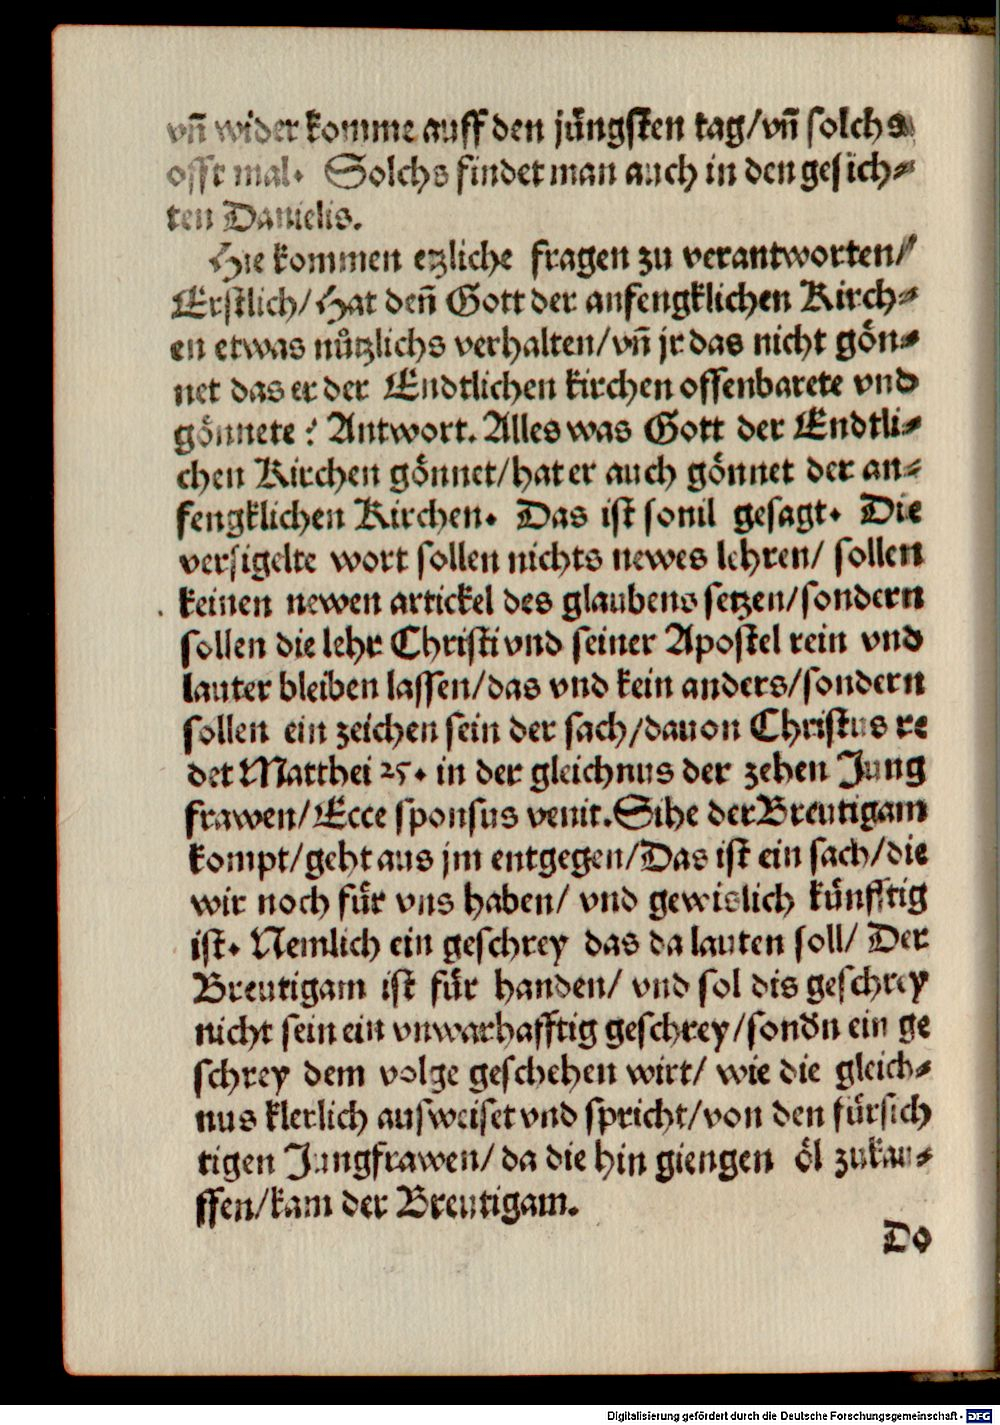 vñ wider komme auff den jüngsten tag/vñ solchs
offt mal. Solchs findet man auch in den gesich⸗
ten Danielis.
Hie kommen etzliche fragen zu verantworten/
Erstlich/Hat deñ Gott der anfengklichen Kirch⸗
en etwas nůtzlichs verhalten/vñ jr das nicht gön⸗
net das er der Endtlichen kirchen offenbarete vnd
gönnete? Antwort. Alles was Gott der Endtli⸗
chen Kirchen gönnet/hat er auch gönnet der an⸗
fengklichen Kirchen. Das ist souil gesagt. Die
versigelte wort sollen nichts newes lehren/ sollen
keinen newen artickel des glaubens setzen/sondern
sollen die lehr Christi vnd seiner Apostel rein vnd
lauter bleiben lassen/das vnd kein anders/sondern
sollen ein zeichen sein der sach/dauon Christus re
det Matthei 25. in der gleichnus der zehen Jung
frawen/Ecce sponsus venit. Sihe der Breutigam
kompt/geht aus jm entgegen/Das ist ein sach/die
wir noch für vns haben/ vnd gewislich künfftig
ist. Nemlich ein geschrey das da lauten soll/ Der
Breutigam ist für handen/ vnd sol dis geschrey
nicht sein ein vnwarhafftig geschrey/sondn ein ge
schrey dem volge geschehen wirt/ wie die gleich⸗
nus klerlich ausweiset vnd spricht/von den fürsich
tigen Jungfrawen/ da die hin giengen öl zukau⸗
ffen/kam der Breutigam.
Do
Digitalisierung gefördert durch die Deutsche Forschungsgemeinschaft - DFG